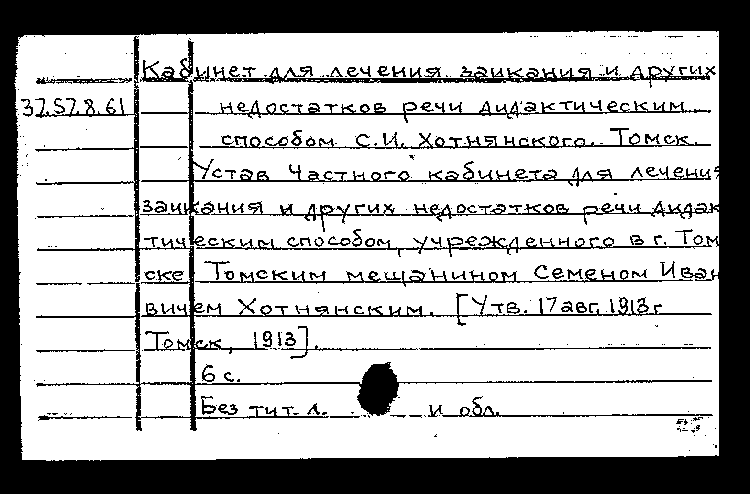 Кабинет для лечения заикания и других
37.57.8.61 недостатков речи дидактическим
способом С.И. Хотнянского. Томск.
Устав Частного кабинета для лечения
заикания и других недостатков речи дидак
тическим способом, учрежденного в г. Том
ске Томским мещанином Семеном Иван
вичем Хотнянским. [Утв. 17 авг. 1913 г
Томск, 1913].
6 с.
Без тит. л. и обл.